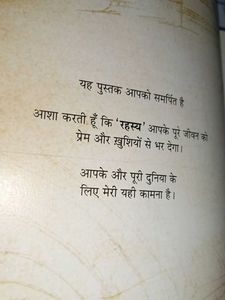 यह पुस्तक आपको समर्पित है
आशा करती हूँ कि 'रहस्य' आपके पूरे जीवन को
प्रेम और ख़ुशियों से भर देगा।
आपके और पूरी दुनिया के
लिए मेरी यही कामना है।